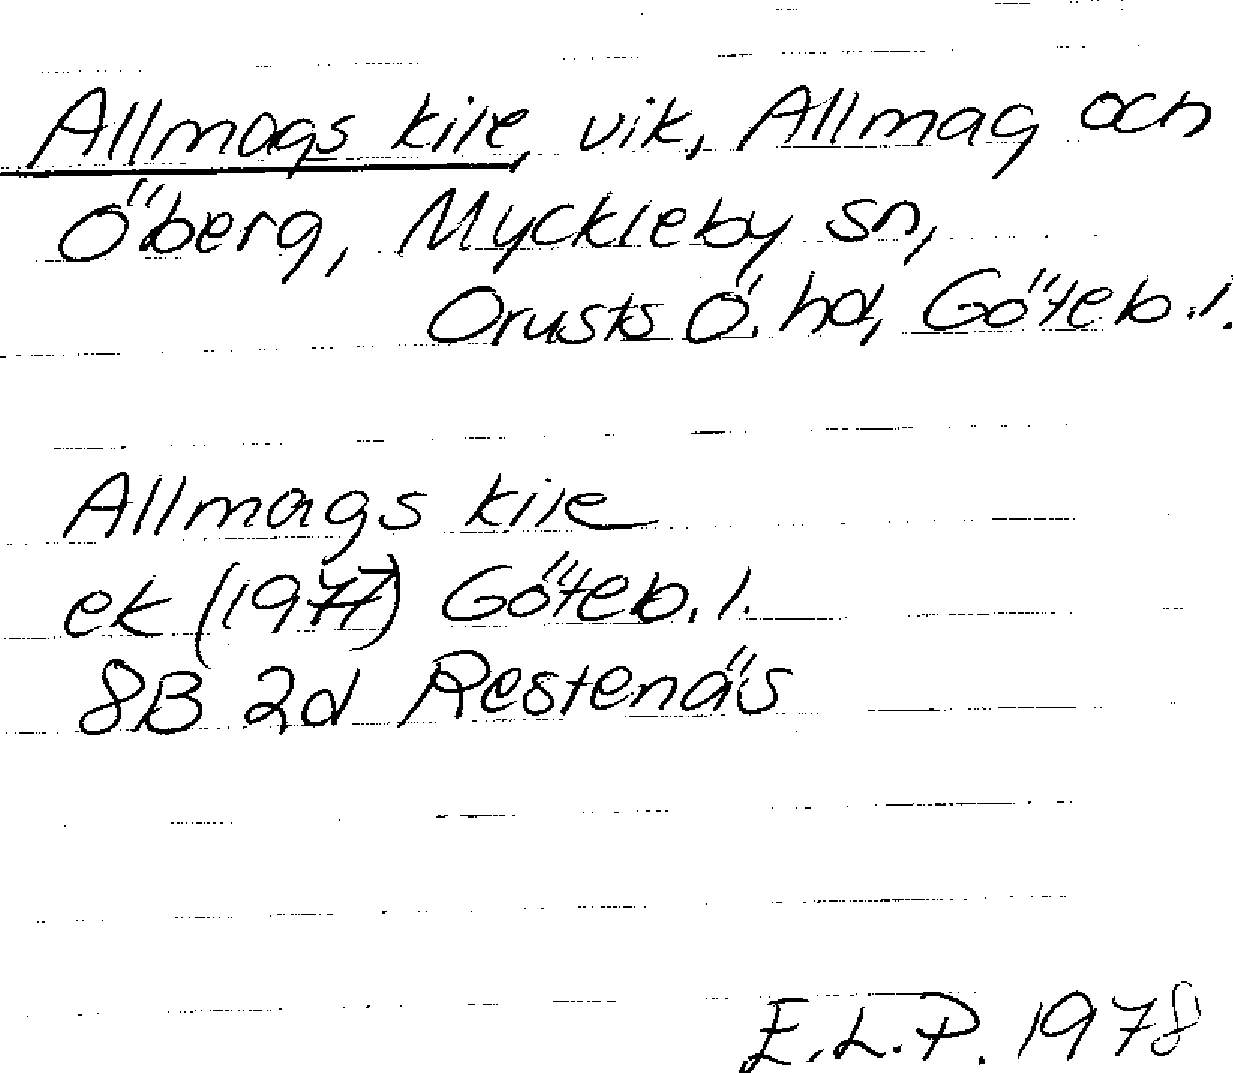 Allmags kile, vik, Allmag och
Öberg, Myckleby sn,
Orusts Ö. hd, Göteb. l.
Allmags kile
ek (1977) Göteb. l.
8B 2d Restenäs
E.L.P. 1978